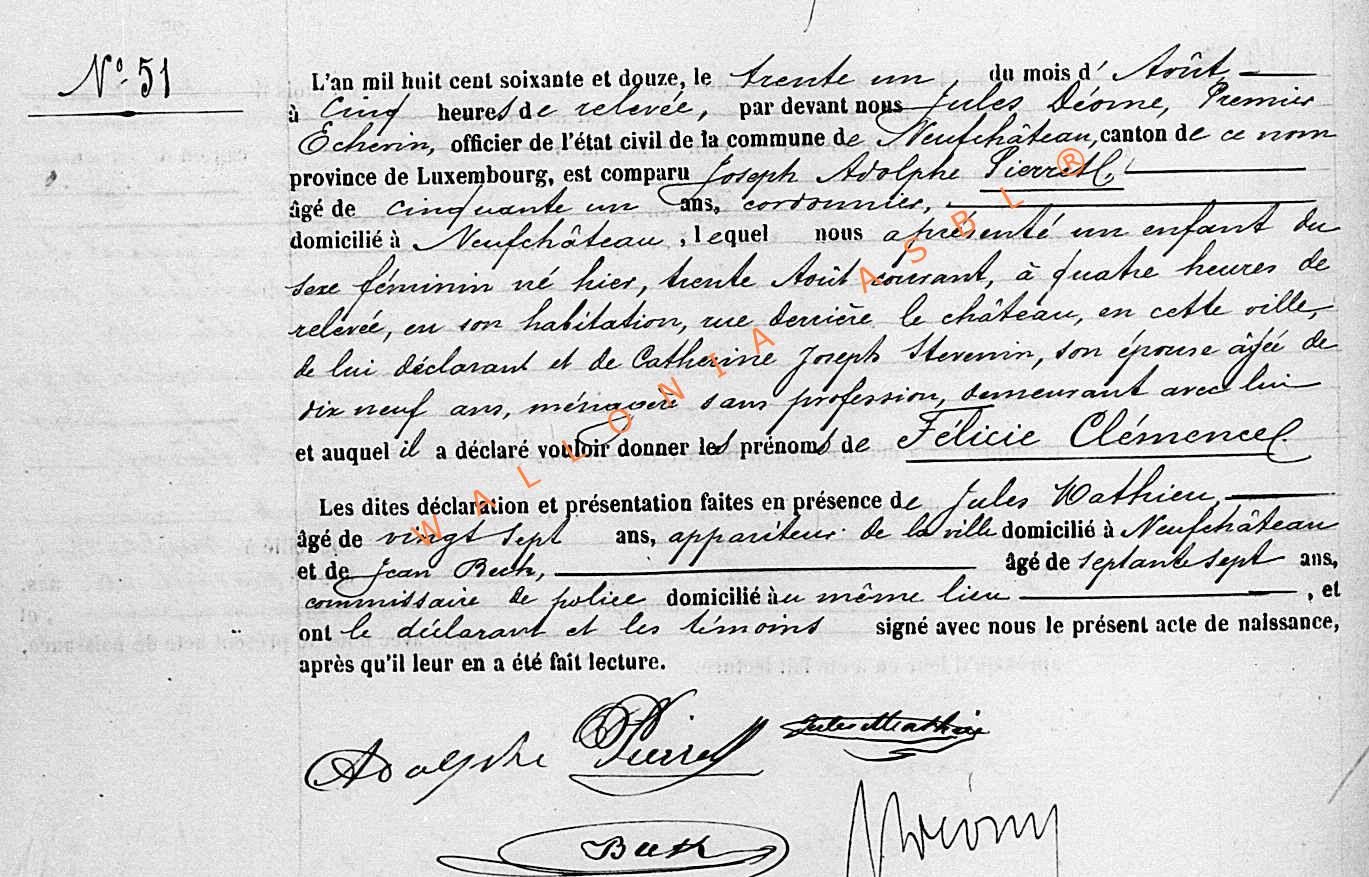 N° 51
L'an mil huit cent soixante et douze, le trente un, du mois d'Août,
à cinq heures de relevée, par devant nous Jules Déome, Premier
Echevin, officier de l'état civil de la commune de Neufchâteau, canton de ce nom
province de Luxembourg, est comparu Joseph Adolphe Pierret,
âgé de cinquante un ans, cordonnier,
domicilié à Neufchâteau, lequel nous a présenté un enfant du
sexe féminin né hier, trente Août courant, à quatre heures de
relevée, en son habitation, rue derrière le château, en cette ville,
de lui déclarant et de Catherine Joseph Stevenin, son épouse âgée de
dix neuf ans, ménagère sans profession, demeurant avec lui
et auquel il a déclaré vouloir donner les prénoms de Félicie Clémence.
Les dites déclaration et présentation faites en présence de Jules Mathieu,
âgé de vingt sept ans, appariteur de la ville domicilié à Neufchâteau
et de Jean Beth, âgé de septante sept ans,
commissaire de police domicilié au même lieu, et
ont le déclarant et les témoins signé avec nous le présent acte de naissance,
après qu'il leur en a été fait lecture.
Adolphe Pierret Jules Mathieu
Beth Déome
WALLONIA ASBL ®